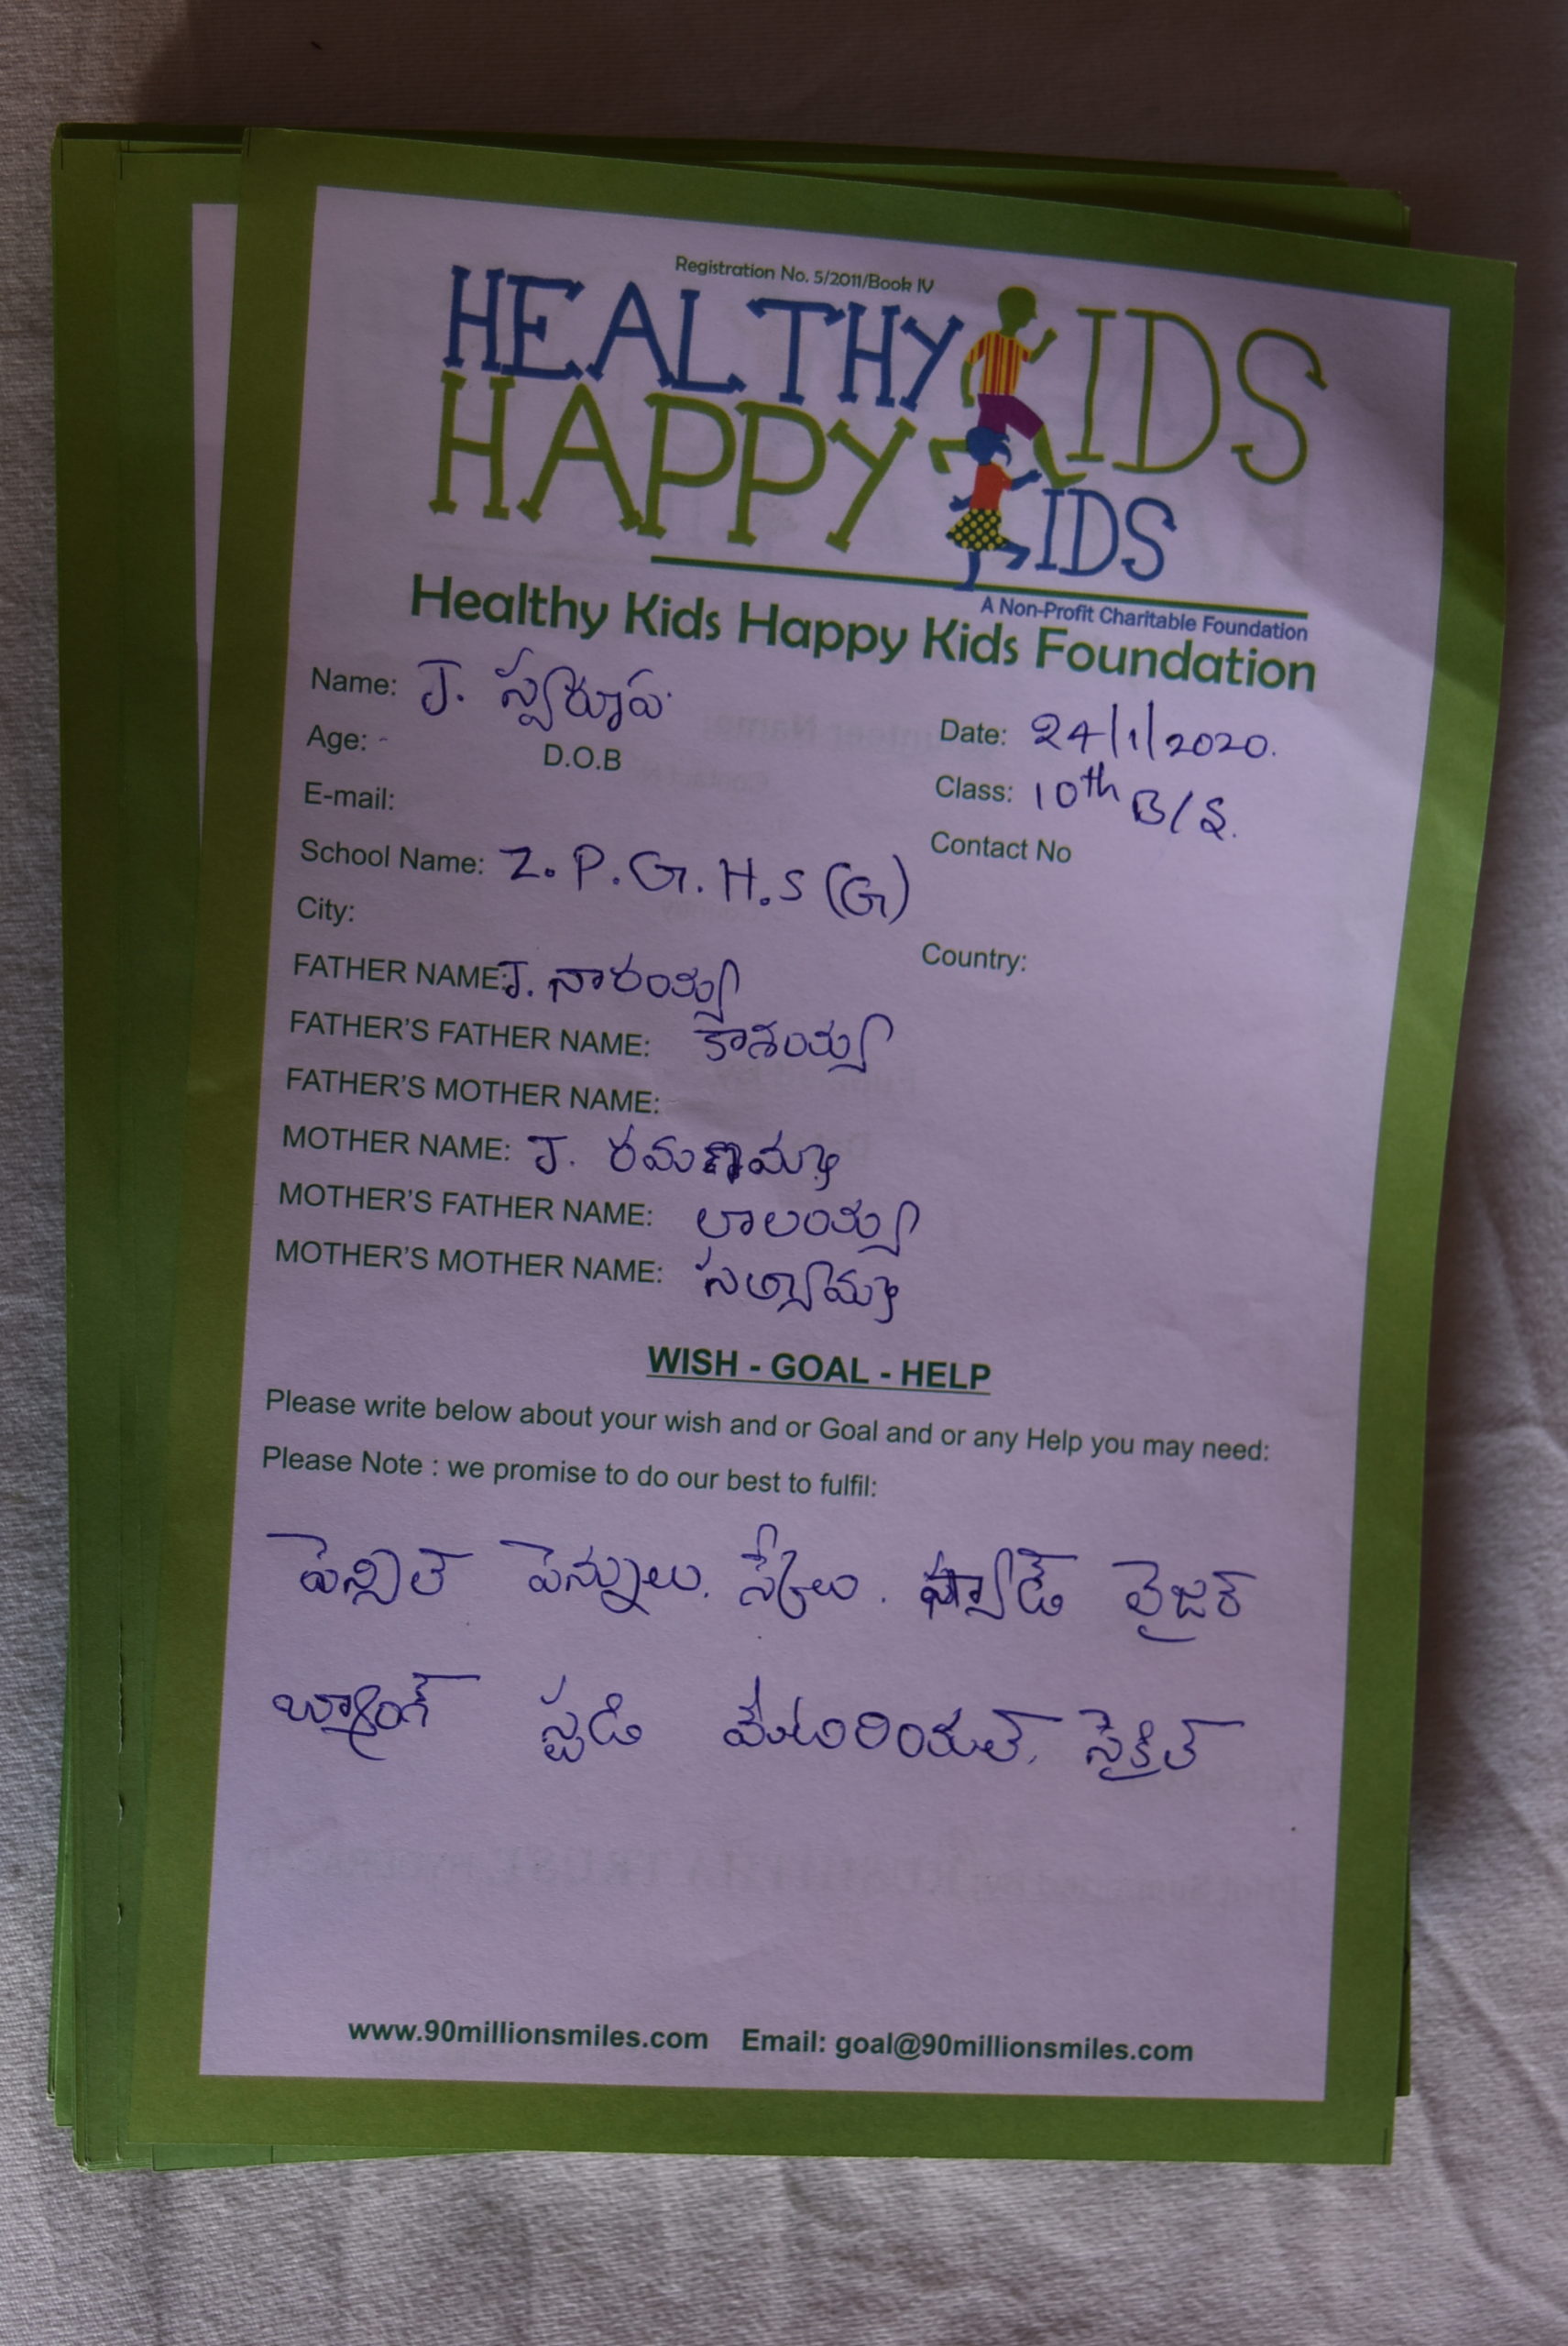 Registration No. 5/2011/Book IV
HEALTHY KIDS
HAPPY KIDS
A Non-Profit Charitable Foundation
Healthy Kids Happy Kids Foundation
Name: J. స్వరూప.
Date: 24/1/2020.
Age: - D.O.B
Class: 10th B/S.
E-mail:
Contact No
School Name: Z. P. G. H. S (G)
City:
Country:
FATHER NAME: J. నారయ్య
FATHER'S FATHER NAME: కాశయ్య
FATHER'S MOTHER NAME:
MOTHER NAME: J. రమణమ్మ
MOTHER'S FATHER NAME: లాలయ్య
MOTHER'S MOTHER NAME:
WISH - GOAL - HELP
Please write below about your wish and or Goal and or any Help you may need:
Please Note : we promise to do our best to fulfil:
పెన్సిల్ పెన్నులు. స్కేలు.
బ్యాంగ్ స్టడి మేటిరింయల్. సైకిల్
www.90millionsmiles.com Email: goal@90millionsmiles.com